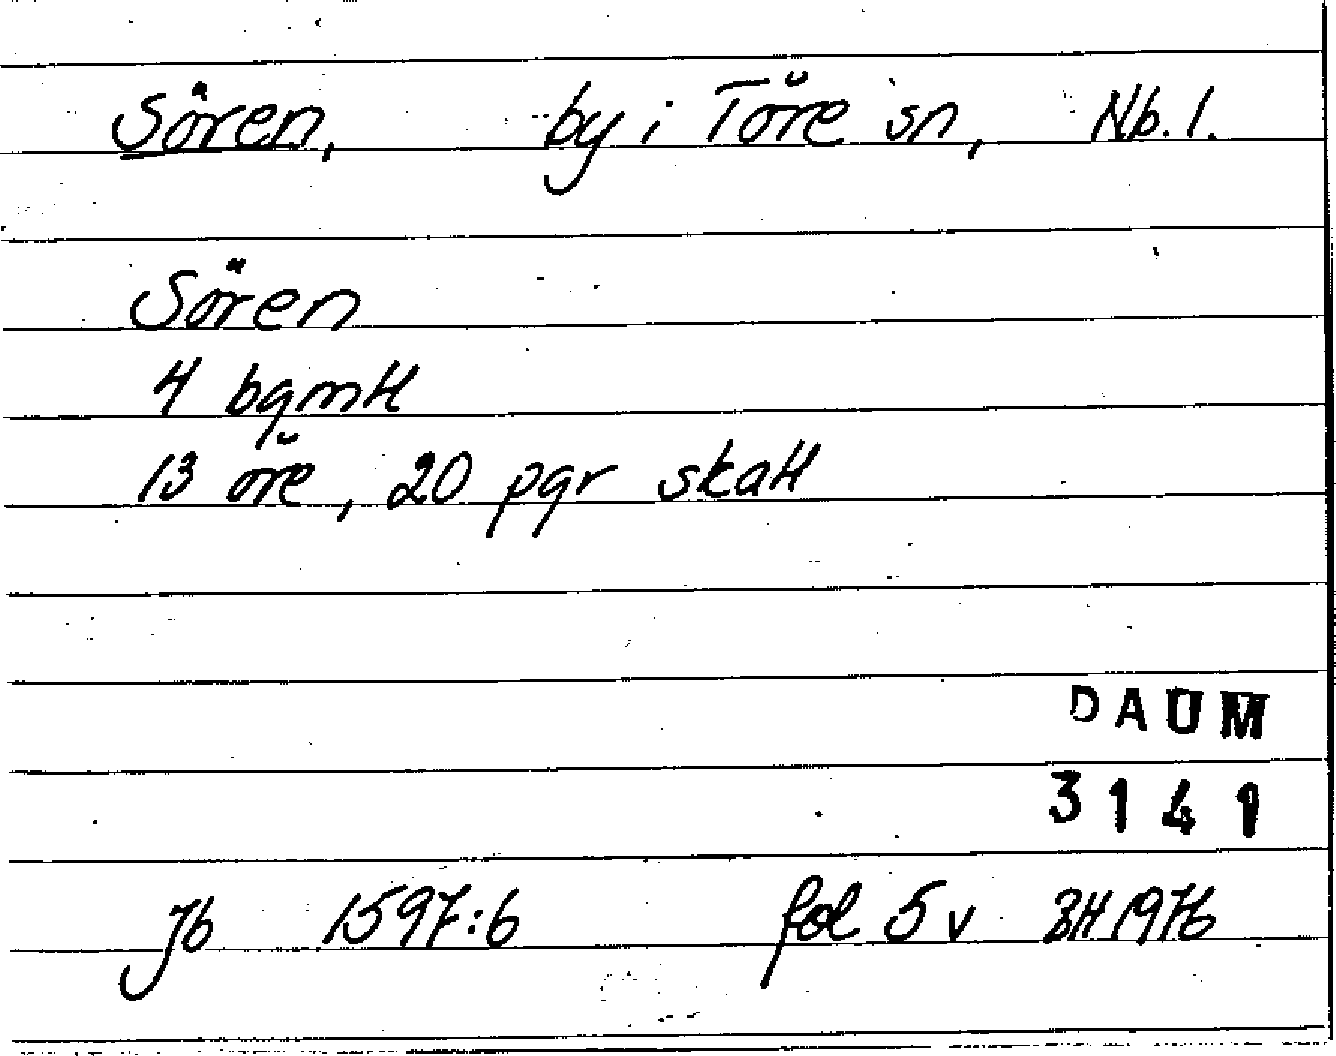 Sören, by i Töre sn, Nb. l.
Sören
4 bqmtt
13 öre, 20 pgr skatt
DAUM
3141
Jb 1597:6 fol 5 v BH 1976